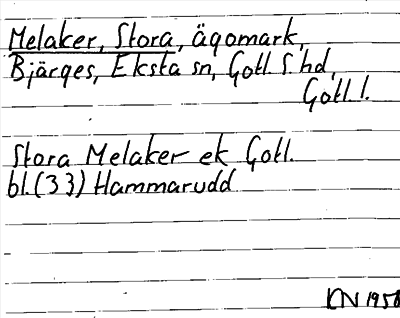 Melaker, Stora, ägomark,
Bjärges, Eksta sn, Gotl. S. hd,
Gotl l.
Stora Melaker ek Gotl.
bl.(33) Hammarudd
KN 1958